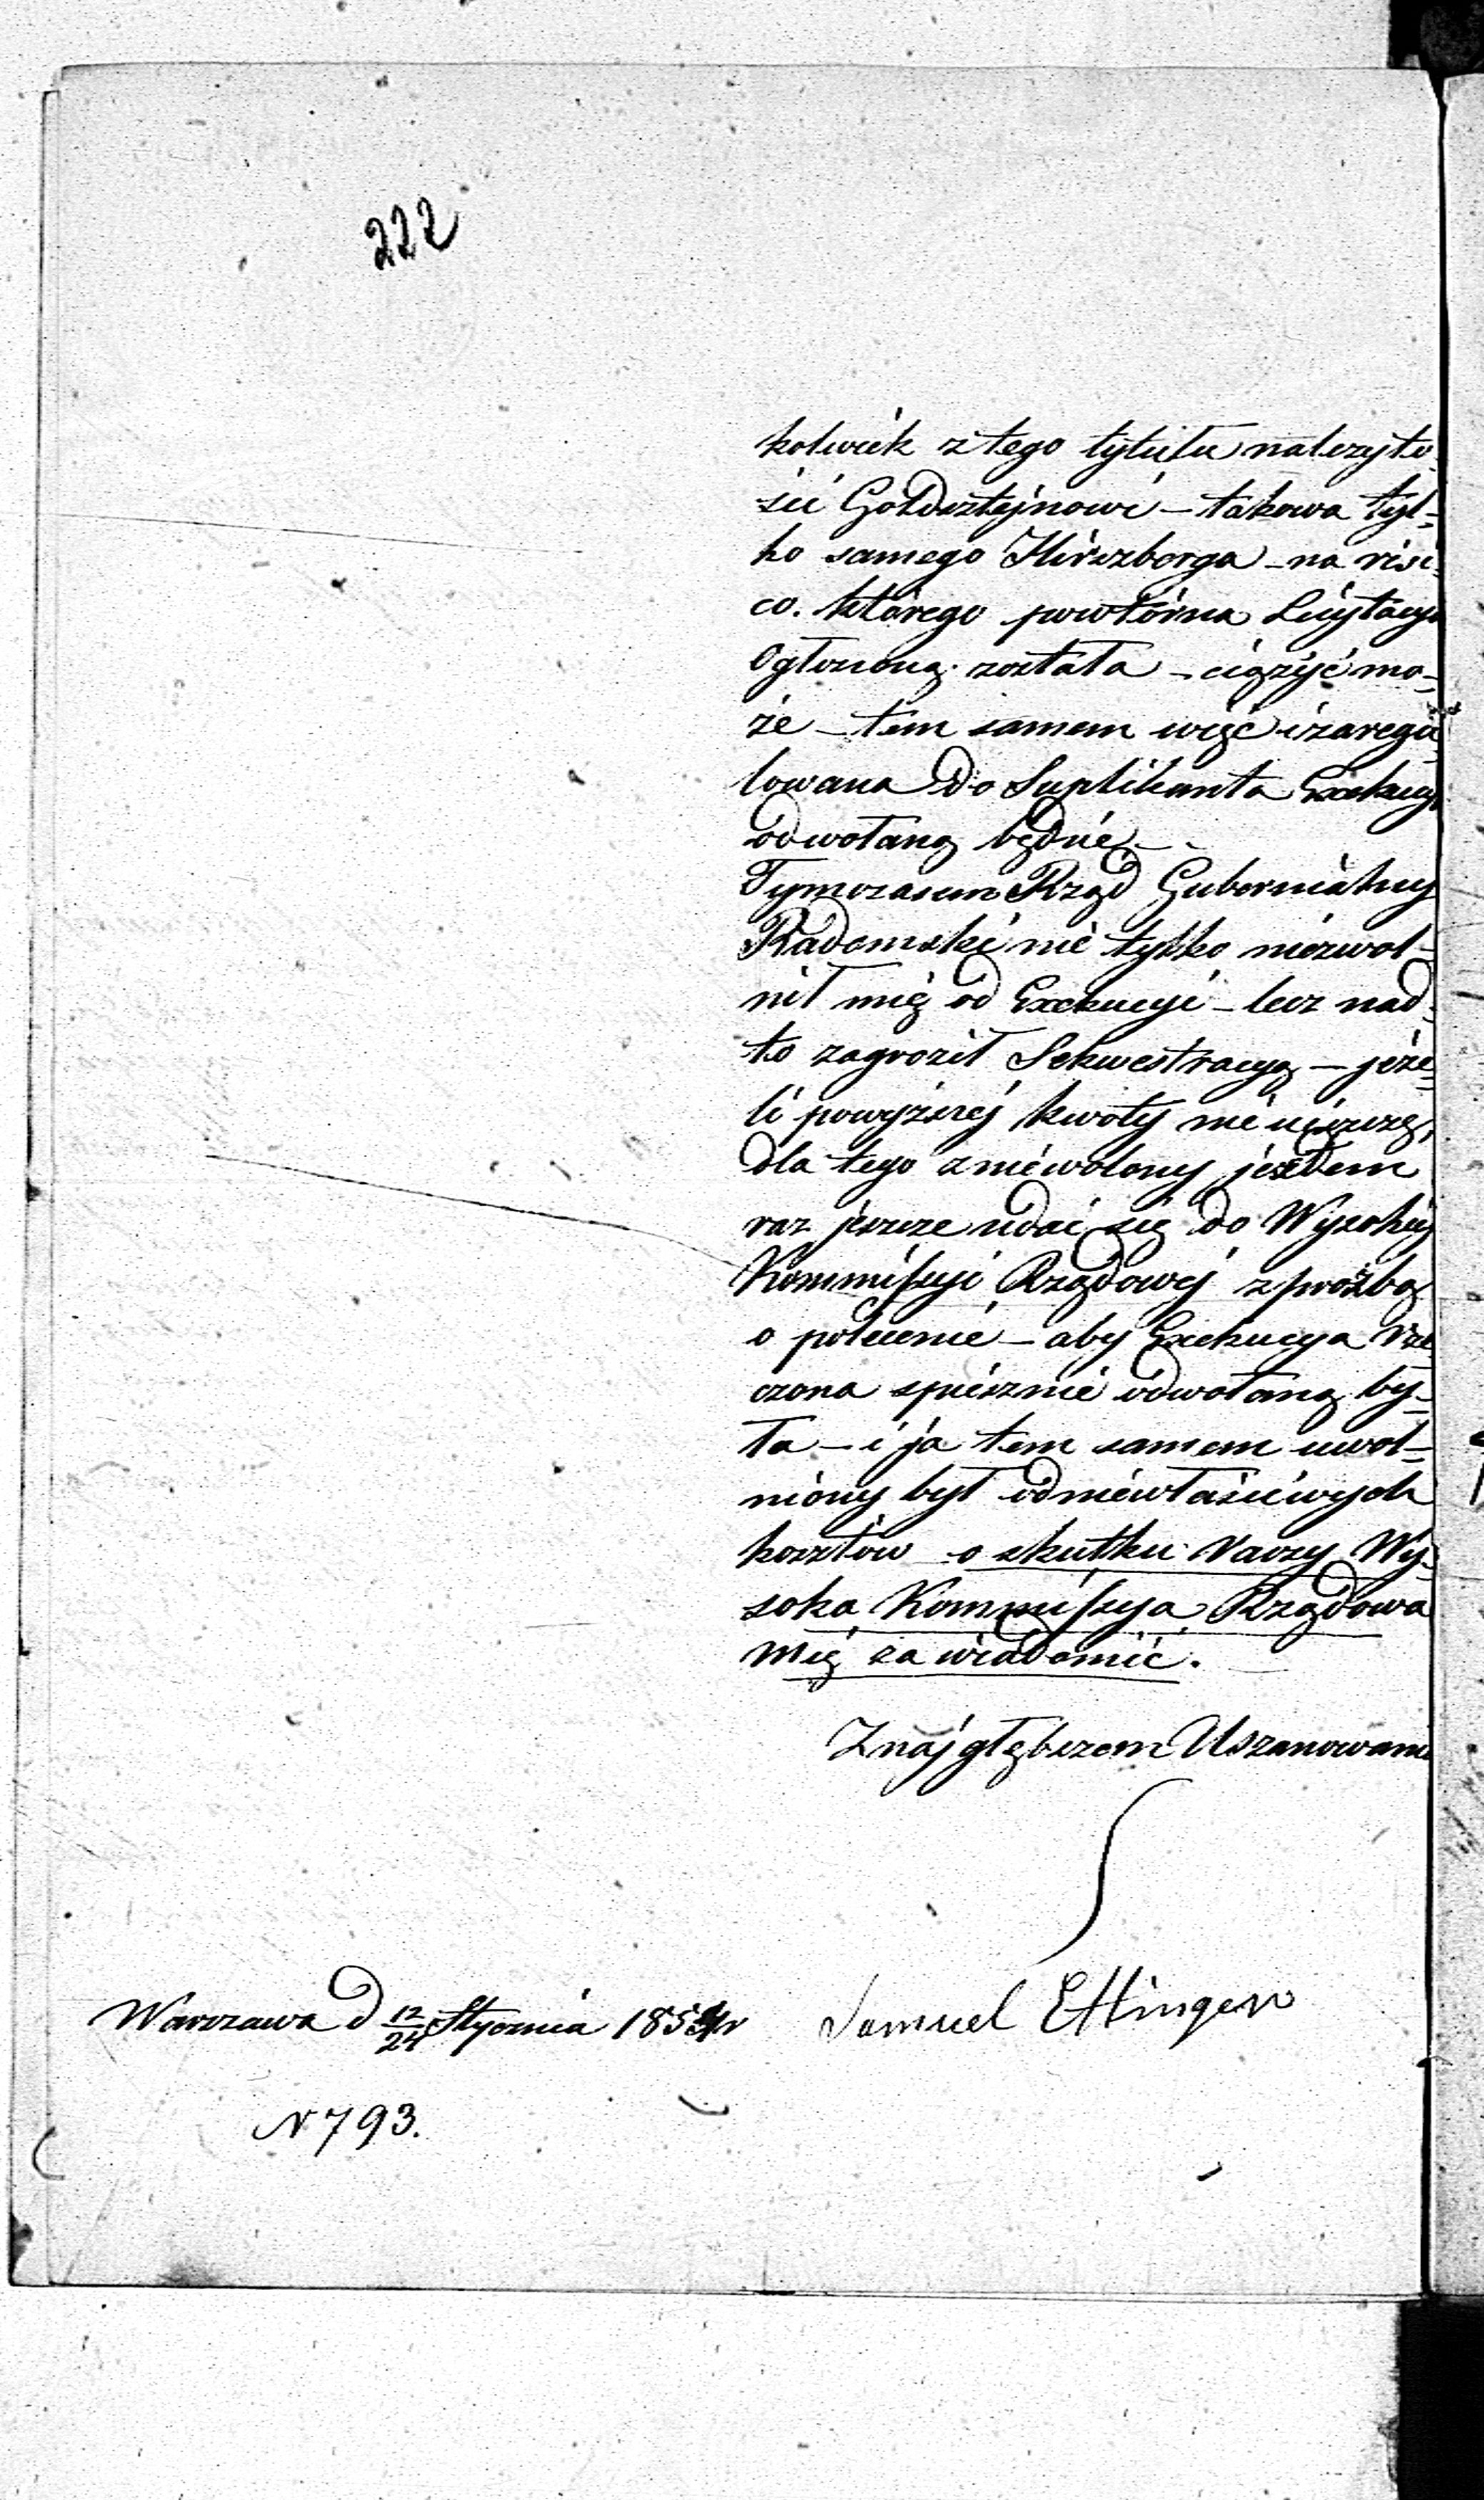 222
kolwiek z tego tytułu należyto-
ści Goldsztejnowi – takowa tyl-
ko samego Hirszberga – na risi-
co. którego powtórna Licytacya
Ogłoszoną została – ciążyć mo-
że – tem samem więc i zaregu-
lowana do Suplikanta Exekucya
odwołaną będzie –
Tymczasem Rząd Gubernialny
Radomski nie tylko niezwol-
nił mię od Exekucyi – lecz nad-
to zagroził Sekwestracyą – jeże-
li powyższej kwoty nie uiszczę,
dla tego zniewolony jestem
raz jeszcze udać się do Wysokiej
Kommissyi Rządowej z prośbą
o polecenie – aby Exekucya rze-
czona spiesznie odwołaną by-
ła – i ja tem samem uwol-
niony był od niewłaściwych
kosztów – o skutku raczy Wy-
soka Kommissya Rządowa
mię zawiadomić.
Z najgłębszem Uszanowaniem
Warszawa d 12/24 Stycznia 1854 r
Samuel Ettinger
N 793.